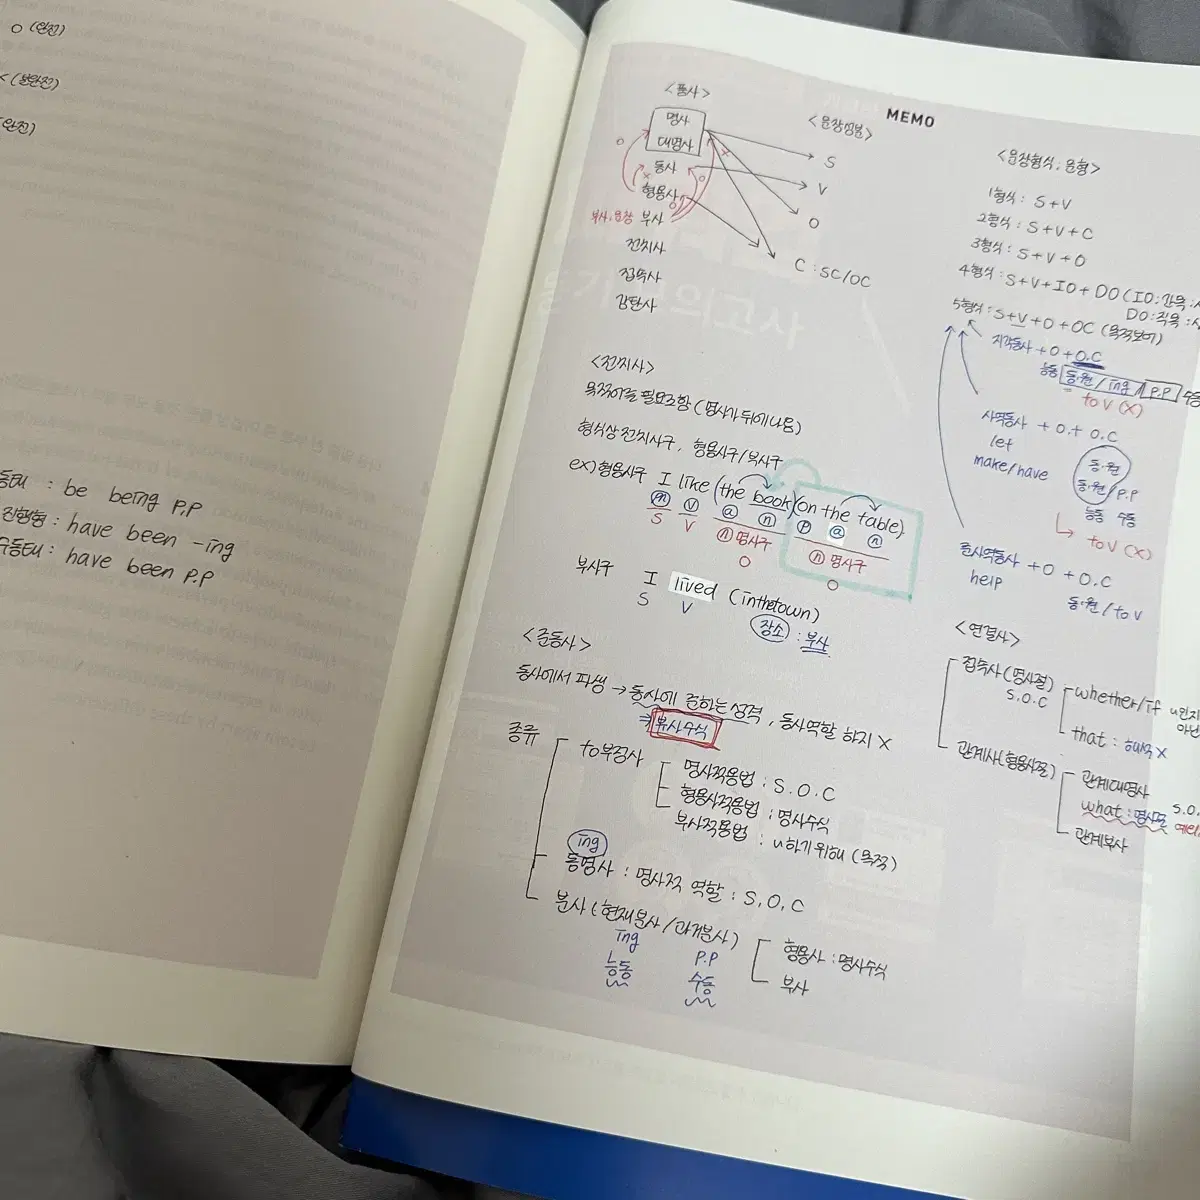 O (완전)
(불완전)
(완전)
동태 : be being P.P
진행형 : have been -ing
수동태 : have been P.P
MEMO
<품사>
명사
대명사
동사
형용사
부사, 문장 부사
전치사
접속사
감탄사
O
X
O
X
<문장성분>
S
V
O
C : SC/OC
<문장형식, 문형>
1형식 : S+V
2형식 : S+V+C
3형식 : S+V+O
4형식 : S+V+IO+DO (IO:간목
DO:직목
5형식 : S+V+O+OC (목적보어)
지각동사 +O+O.C
능동 동.원 / ing / P.P 수동
to V (X)
사역동사 +O.+ O.C
let 동.원
make/have 동.원/P.P
능동 수동
to V (X)
준사역동사 +O +O.C
help 동.원/to V
<전치사>
목적어를 필요로함 (명사가 뒤에 나옴)
형식상 전치사구, 형용사구/부사구
ex) 형용사구 I like (the book)(on the table)
n v a n P a n
S V n 명사구 n 명사구
O O
부사구 I lived (in the town)
S V 장소 : 부사
<준동사>
동사에서 파생 → 동사에 준하는 성격, 동사역할 하지 X
⇒ 부사수식
종류
to부정사
명사적용법 : S.O.C
형용사적용법 : 명사수식
부사적용법 : ~하기위해 (목적)
ing
동명사 : 명사적 역할 : S, O, C
분사 (현재분사/과거분사)
ing P.P
능동 수동
형용사 : 명사수식
부사
<연결사>
접속사(명사절)
S.O.C
whether/if ~인지
아닌
that : 해석 X
관계사(형용사절)
관계대명사
what : 명사절
관계부사